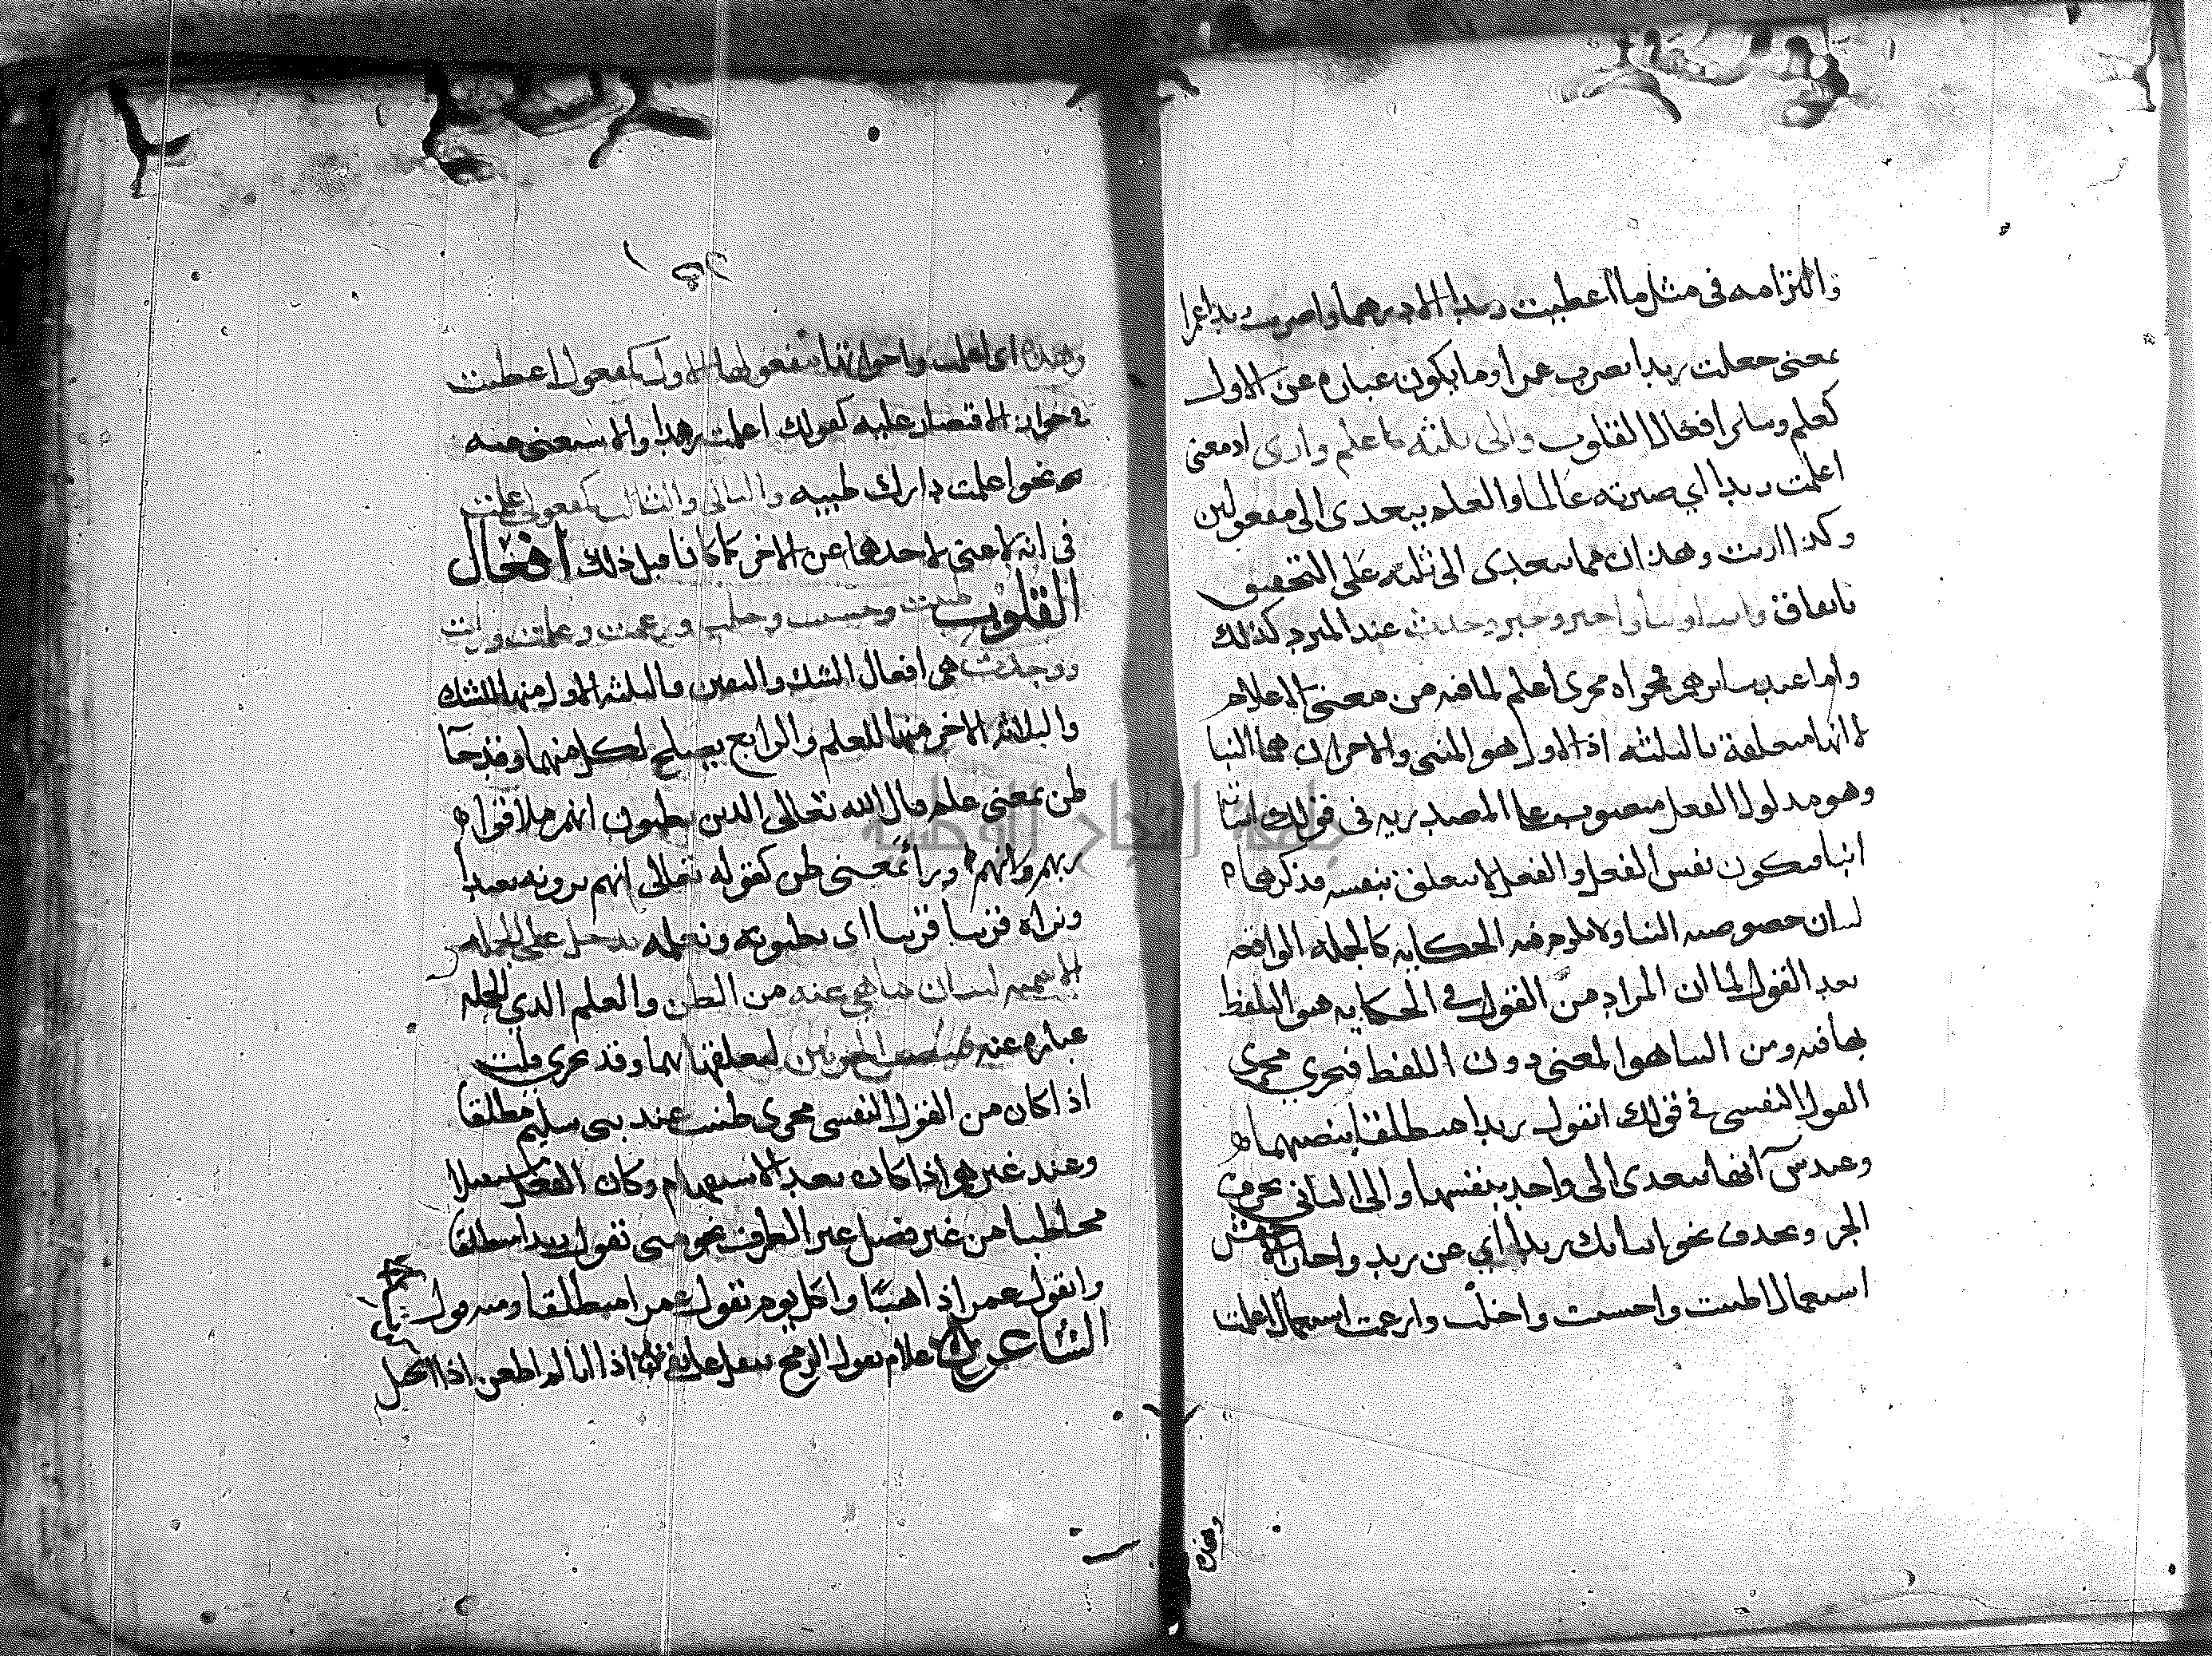 والتزامه فى مثل ما اعطيت زيدا الا درهما واضرب زيدا عمرا
بمعنى جعلت زيدا يضرب عمرا وما يكون عباره عن الاول
كعلم وسائر افعال القلوب والى ثلثه كاعلم وارى اذ معنى
اعلمت زيدا اي صيرته عالما والعلم يتعدى الى مفعولين
وكذا اريت وهذان هما يتعدى الى ثلثه على التحقيق
باتفاق وانبا ونبأ واخبر وخبر وحدث عند المبرد كذلك
واما عند سائرهم مجراه مجرى اعلم لما فيه من معنى الاعلام
لانها متعلقة بالثلثه اذ الاول هو المنبى والاخران هما النبا
وهو مدلول الفعل منصوب على المصدريه فى قولك انبأ
انبا فيكون نفس الفعل والفعل لا يتعلق بنفسه فذكرهما
لبيان خصوصيه النبا ولا يلزم فيه الحكايه كالجمله الواقعه
بعد القول لما ان المراد من القول في الحكايه هو التلفظ
بها فيه ومن النبا هو المعنى دون اللفظ فتجري مجرى
القول النفسي في قولك اتقول زيدا منطلقا بنصبهما
وعند س انها تتعدى الى واحد بنفسها والى الثاني بحرف
الجر ويحذف نحو انباتك زيدا اي عن زيد واجاز الاخفش
استعمال اظننت واحسبت واخلت وازعمت استعمال اعلمت
وهذه
وهذه اى اعلمت واخواتها مفعولها الاول كمفعول اعطيت
في جواز الاقتصار عليه كقولك اعلمت زيدا والاستغنى عنه
نحو اعلمت دارك طيبه والثانى والثالث كمفعولى علمت
فى انه لا غنى لاحدهما عن الاخر كما كانا قبل ذلك افعال
القلوب ظننت وحسبت وخلت وزعمت وعلمت ورايت
ووجدت هى افعال الشك واليقين فالثلثه الاول منها للشك
والثلاثه الاخر منها للعلم والرابع يصلح لكل منهما وقد جآ
ظن بمعنى علم قال الله تعالى الذين يظنون انهم ملاقوا
ربهم وانهم ورأى بمعنى ظن كقوله تعالى انهم يرونه بعيدا
ونراه قريبا قريبا اى يظنونه ونعلمه تدخل على الجمله
الاسميه لبيان ما هي عنه من الظن والعلم الذي الجمله
عباره عنه فتنصب الجزءين لتعلقها بهما وقد تجري قلت
اذا كان من القول النفسى مجرى ظننت عند بنى سليم مطلقا
وعند غيرهم اذا كان بعد الاستفهام وكان الفعل مستقبلا
مخاطبا من غير فصل غير الظرف نحو متى تقول زيدا منطلقا
واتقول عمرا ذاهبًا واكل يوم تقول عمرا منطلقا ومنه قول
الشاعر علام تقول الرمح يثقل عاتقى اذا انا لم اطعن اذا الخيل